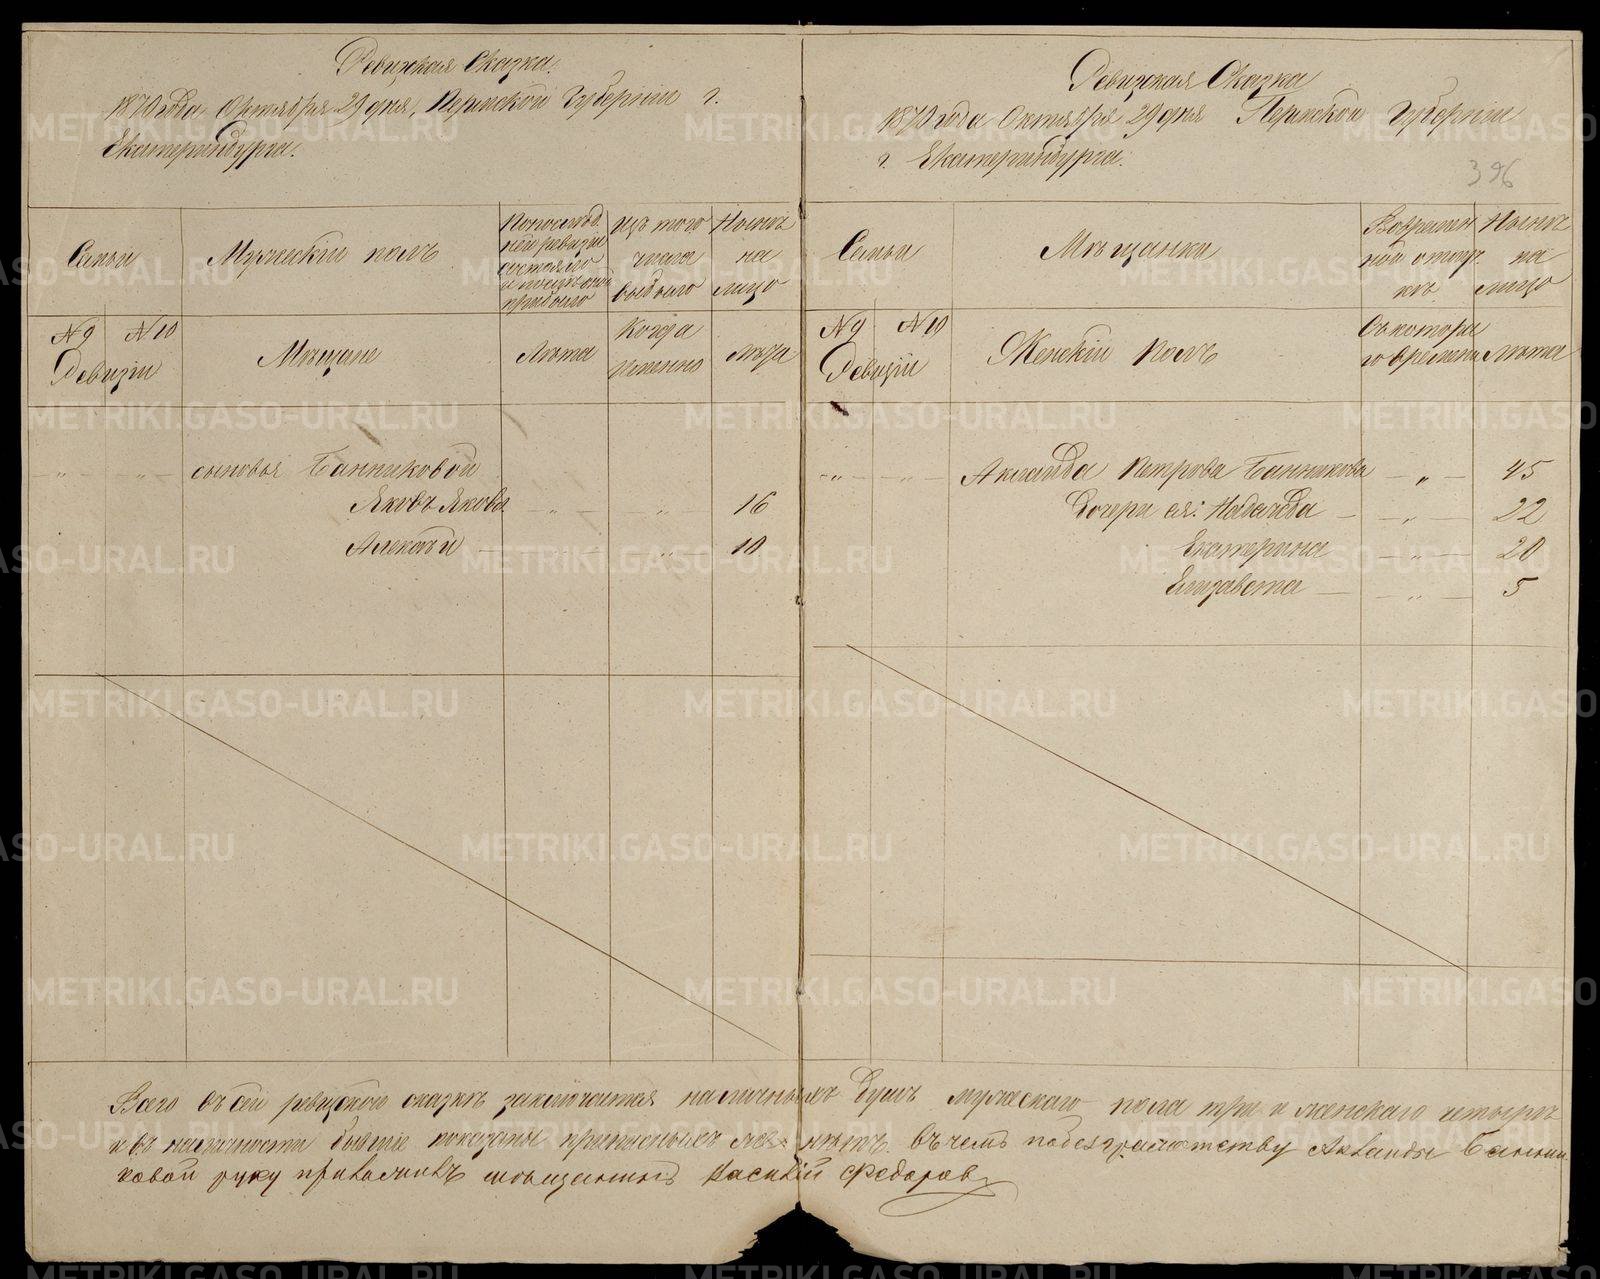 Ревизская Сказка.
1870 года Октября 29 дня, Пермской Губернiи г.
Екатеринбурга.
Семьи
Мужескiй полъ
По последней ревизiи состояло и после оной прибыло
Изъ того числа выбыло
Ныне на лицо
N 9
N 10
Ревизiи
Мѣщане
Лѣта
Когда именно
Лѣта
сыновья Банниковой
Яковъ Яковл. 16
Алексѣй 10
Ревизская Сказка
1870 года Октября 29 дня Пермской Губернiи
г. Екатеринбурга.
396
Семьи
Мѣщанки
Во временной отлучкѣ
Нынѣ на лицо
N 9
N 10
Ревизiи
Женскiй полъ
Съ котораго времени
Лѣта
Петрова Банникова — " — 45
Дочери ея: — " — 22
Екатерина — " — 20
Елизавета — " — 5
Всего въ сей ревизской сказкѣ заключается наличныхъ душъ мужескаго пола три и женскаго четыре
и въ наличности бывшiе показаны въ чемъ по безграмотству Банни
ковой руку приложилъ мѣщанинъ Василiй Федоровъ
METRIKI.GASO-URAL.RU